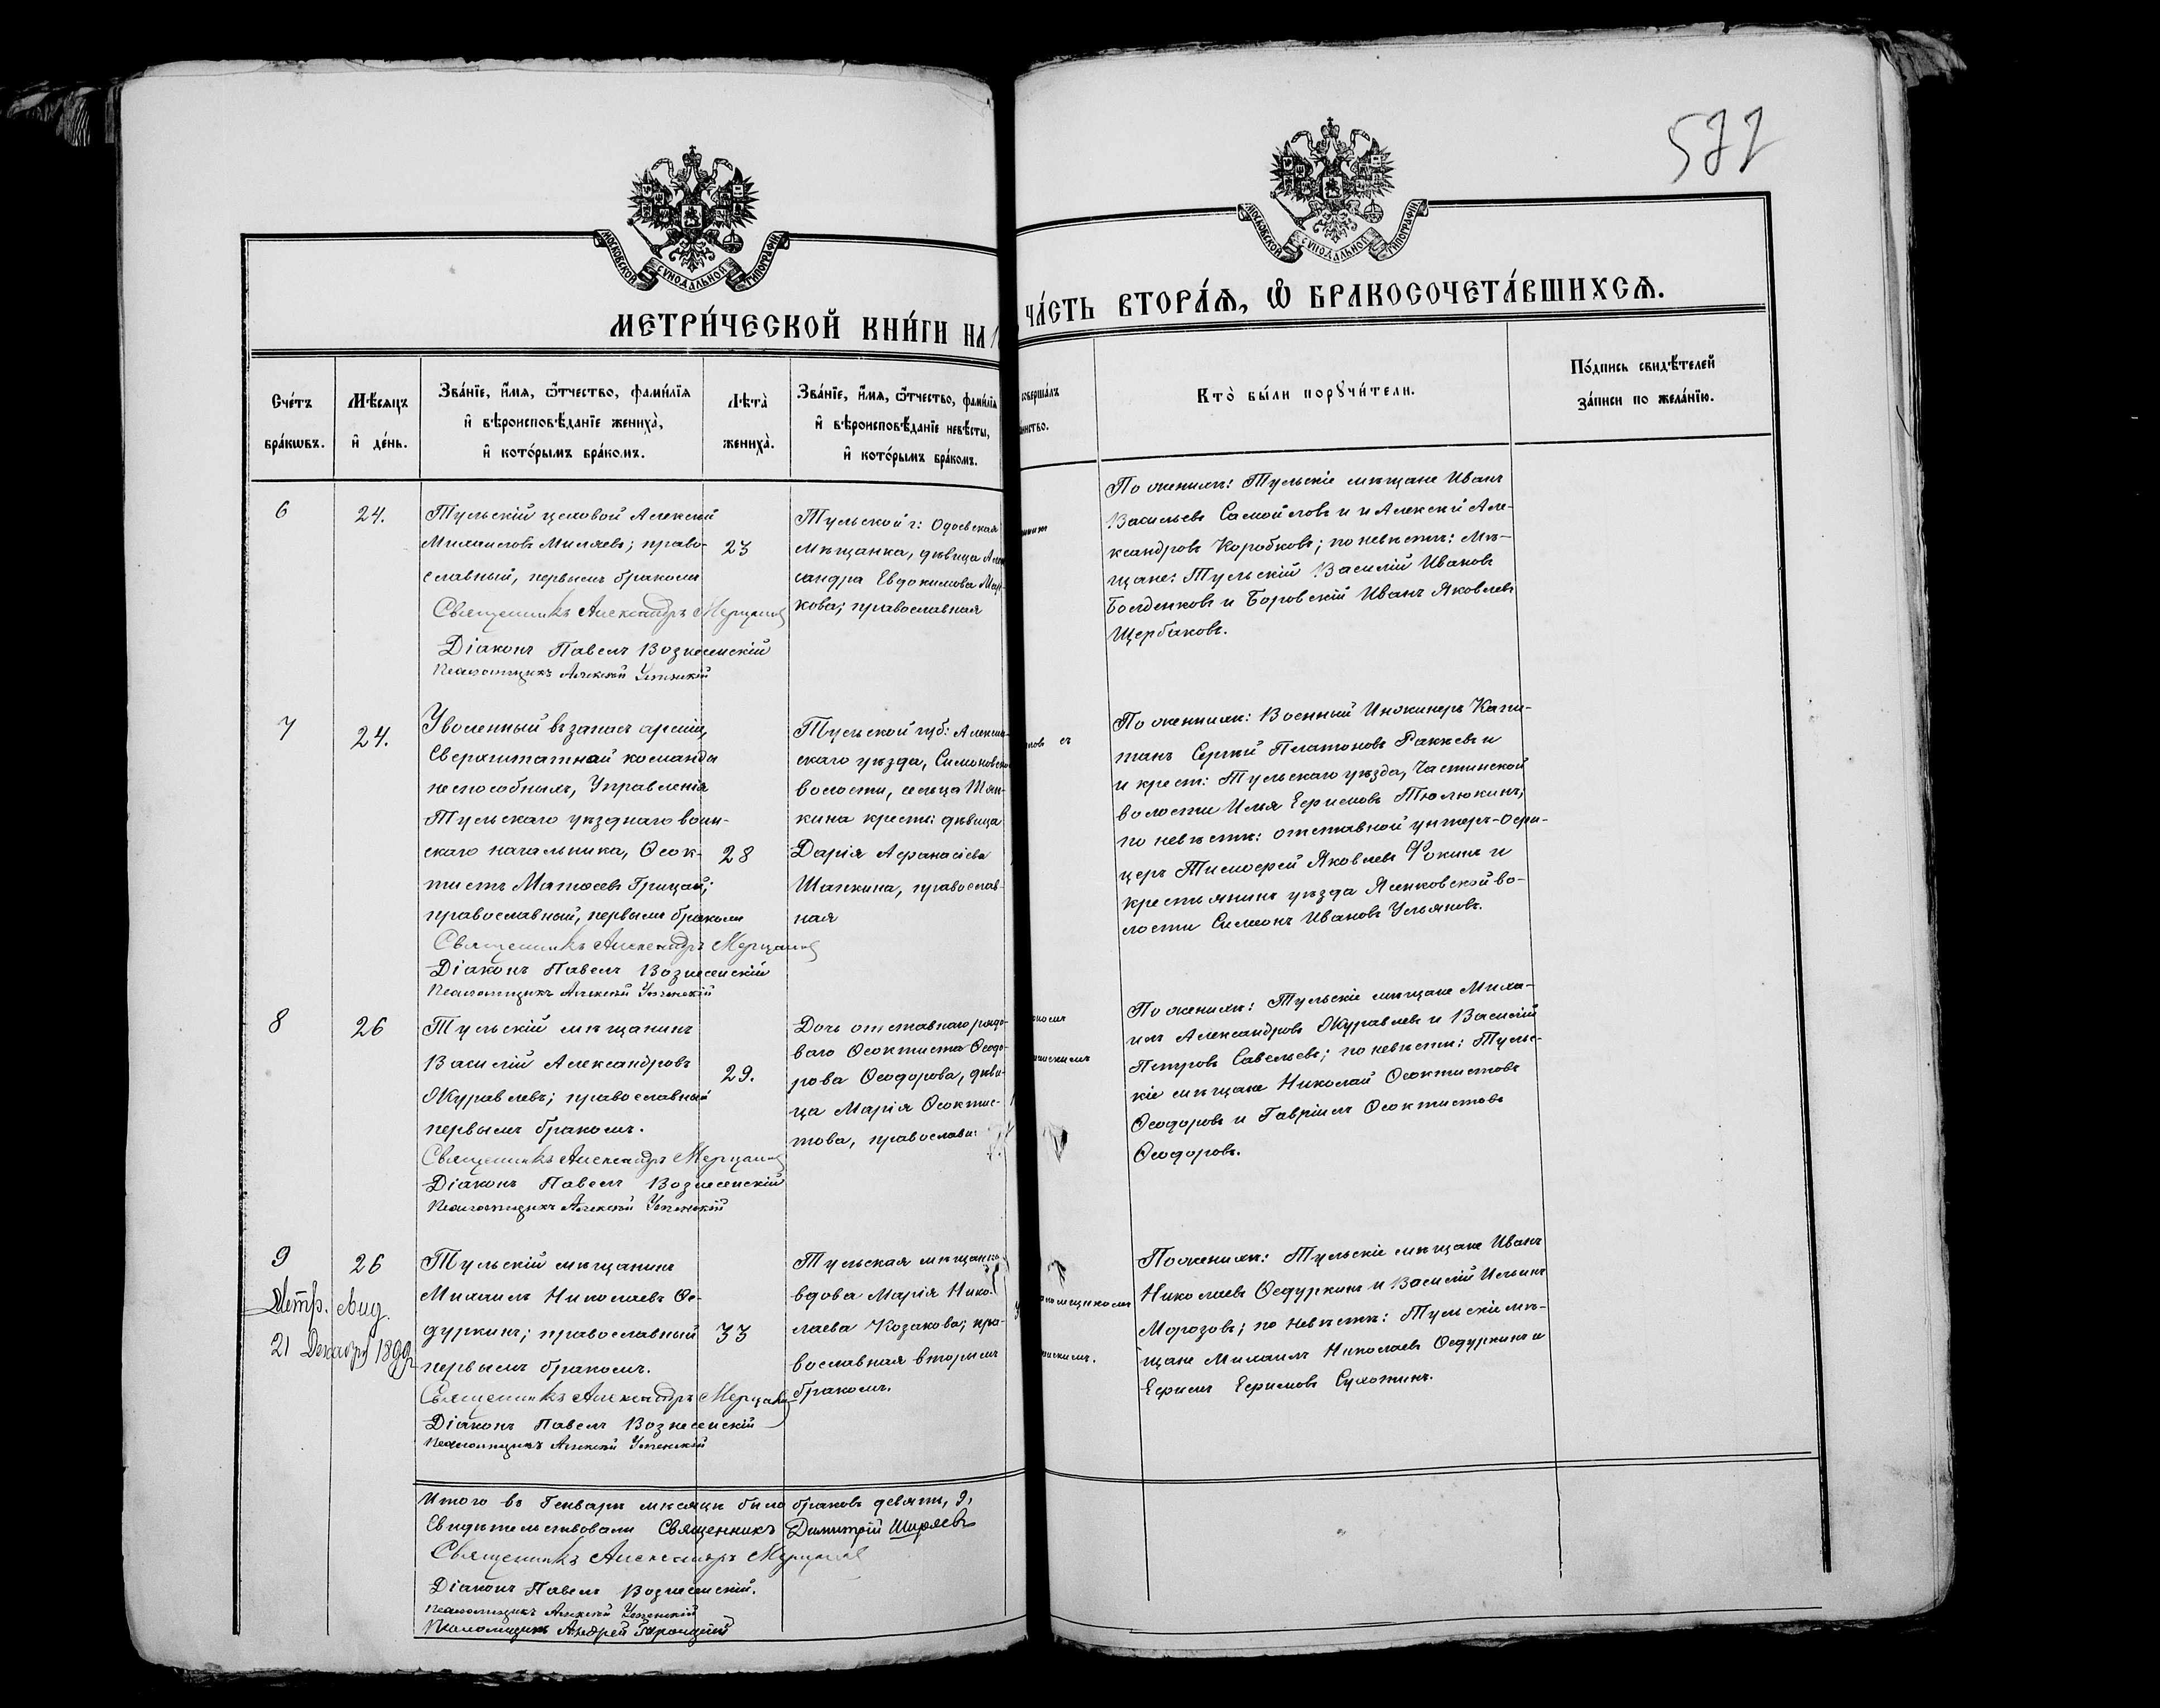 572
МОСКОВСКОЙ СУНОДАЛЬНОЙ ТИПОГРАФІИ
МОСКОВСКОЙ СУНОДАЛЬНОЙ ТИПОГРАФІИ
МЕТРИ́ЧЕСКОЙ КНИ́ГИ НА
ЧА́СТЬ ВТОРА́Ѧ, Ѽ БРАКОСОЧЕТА́ВШИХСѦ.
Сче́тъ
бра́кѡвъ.
Мѣ́сяцъ
и҆ де́нь.
Зва́нїе, и҆́мя, ѻ҆́тчество, фами́лїя
и҆ вѣроисповѣ́данїе жениха̀,
и҆ кото́рымъ бра́комъ.
Лѣта̀
жениха̀.
Зва́нїе, и҆́мя, ѻ҆́тчество, фами́лїя
и҆ вѣроисповѣ́данїе невѣ́сты,
и҆ кото́рымъ бра́комъ.
Кто̀ бы́ли порꙋчи́тели.
По́дпись свидѣ́телей
за́писи по жела́нїю.
6
24.
Тульскій цеховой Алексѣй
Михаиловъ Миляевъ; право-
славный, первымъ бракомъ
23
Священникъ Александръ Мерцаловъ
Діаконъ Павелъ Вознесенскій
Псаломщикъ Алексѣй Успенскій
Тульской г: Одоевская
мѣщанка, дѣвица Алек
сандра Евдокимова Мар
кова; православная
По женихѣ: Тульскіе мѣщане Иванъ
Васильевъ Самойловъ и и Алексѣй Але-
ксандровъ Коробковъ; по невѣстѣ: Мѣ-
щане: Тульскій Василій Ивановъ
Болденковъ и Боровскій Иванъ Яковлевъ
Щербаковъ.
7
24.
Уволенный въ запасъ арміи,
Сверхштатной команды
неспособныхъ, Управленія
Тульскаго уѣзднаго воин-
скаго начальника, Ѳеок-
тистъ Матѳеевъ Грицай;
православный, первымъ бракомъ
28
Священникъ Александръ Мерцаловъ
Діаконъ Павелъ Вознесенскій
Псаломщикъ Алексѣй Успенскій
Тульской губ: Алексин-
скаго уѣзда, Симоновско
волости, сельца Шап-
кина крест: дѣвица
Дарія Аѳанасіева
Шапкина, православ-
ная
По женихѣ: Военный Инженеръ Капи-
танъ Сергѣй Платоновъ Раккевъ и
и крест: Тульскаго уѣзда, Частинской
волости Илья Ефимовъ Тюлюкинъ;
по невѣстѣ: отставной унтеръ-офи-
церъ Тимоѳей Яковлевъ Фокинъ и
крестьянинъ уѣзда Ясенковской во-
лости Симеонъ Ивановъ Ульяновъ.
8
26
Тульскій мѣщанинъ
Василій Александровъ
Журавлевъ; православный
первымъ бракомъ.
29.
Священникъ Александръ Мерцаловъ
Діаконъ Павелъ Вознесенскій
Псаломщикъ Алексѣй Успенскій
Дочь отставнаго рядо-
ваго Ѳеоктиста Ѳеодо-
рова Ѳеодорова, дѣви-
ца Марія Ѳеоктис-
това, православн
По женихѣ: Тульскіе мѣщане Миха-
илъ Александровъ Журавлевъ и Василій
Петровъ Савельевъ; по невѣстѣ: Тульс-
кіе мѣщане Николай Ѳеоктистовъ
Ѳеодоровъ и Гавріилъ Ѳеоктистовъ
Ѳеодоровъ.
9
26
Метр. свид.
21 Декабря 1899
Тульскій мѣщанинъ
Михаилъ Николаевъ Ѳе-
дуркинъ; православный
первымъ бракомъ.
33
Священникъ Александръ Мерцаловъ
Діаконъ Павелъ Вознесенскій
Псаломщикъ Алексѣй Успенскій
Тульская мѣщанка
вдова Марія Нико-
лаева Козакова; пра-
вославная вторымъ
бракомъ.
По женихѣ: Тульскіе мѣщане Иванъ
Николаевъ Ѳедуркинъ и Василій Ильинъ
Морозовъ; по невѣстѣ: Тульскіе мѣ-
щане Михаилъ Николаевъ Ѳедуркинъ и
Ефимъ Ефимовъ Сухотинъ.
Итого въ Генварѣ мѣсяцѣ было браковъ девять, 9,
Свидѣтельствовали Священникъ Димитрій Ширяевъ
Священникъ Александръ Мерцаловъ
Діаконъ Павелъ Вознесенскій.
Псаломщикъ Алексѣй Успенскій
Псаломщикъ Андрей